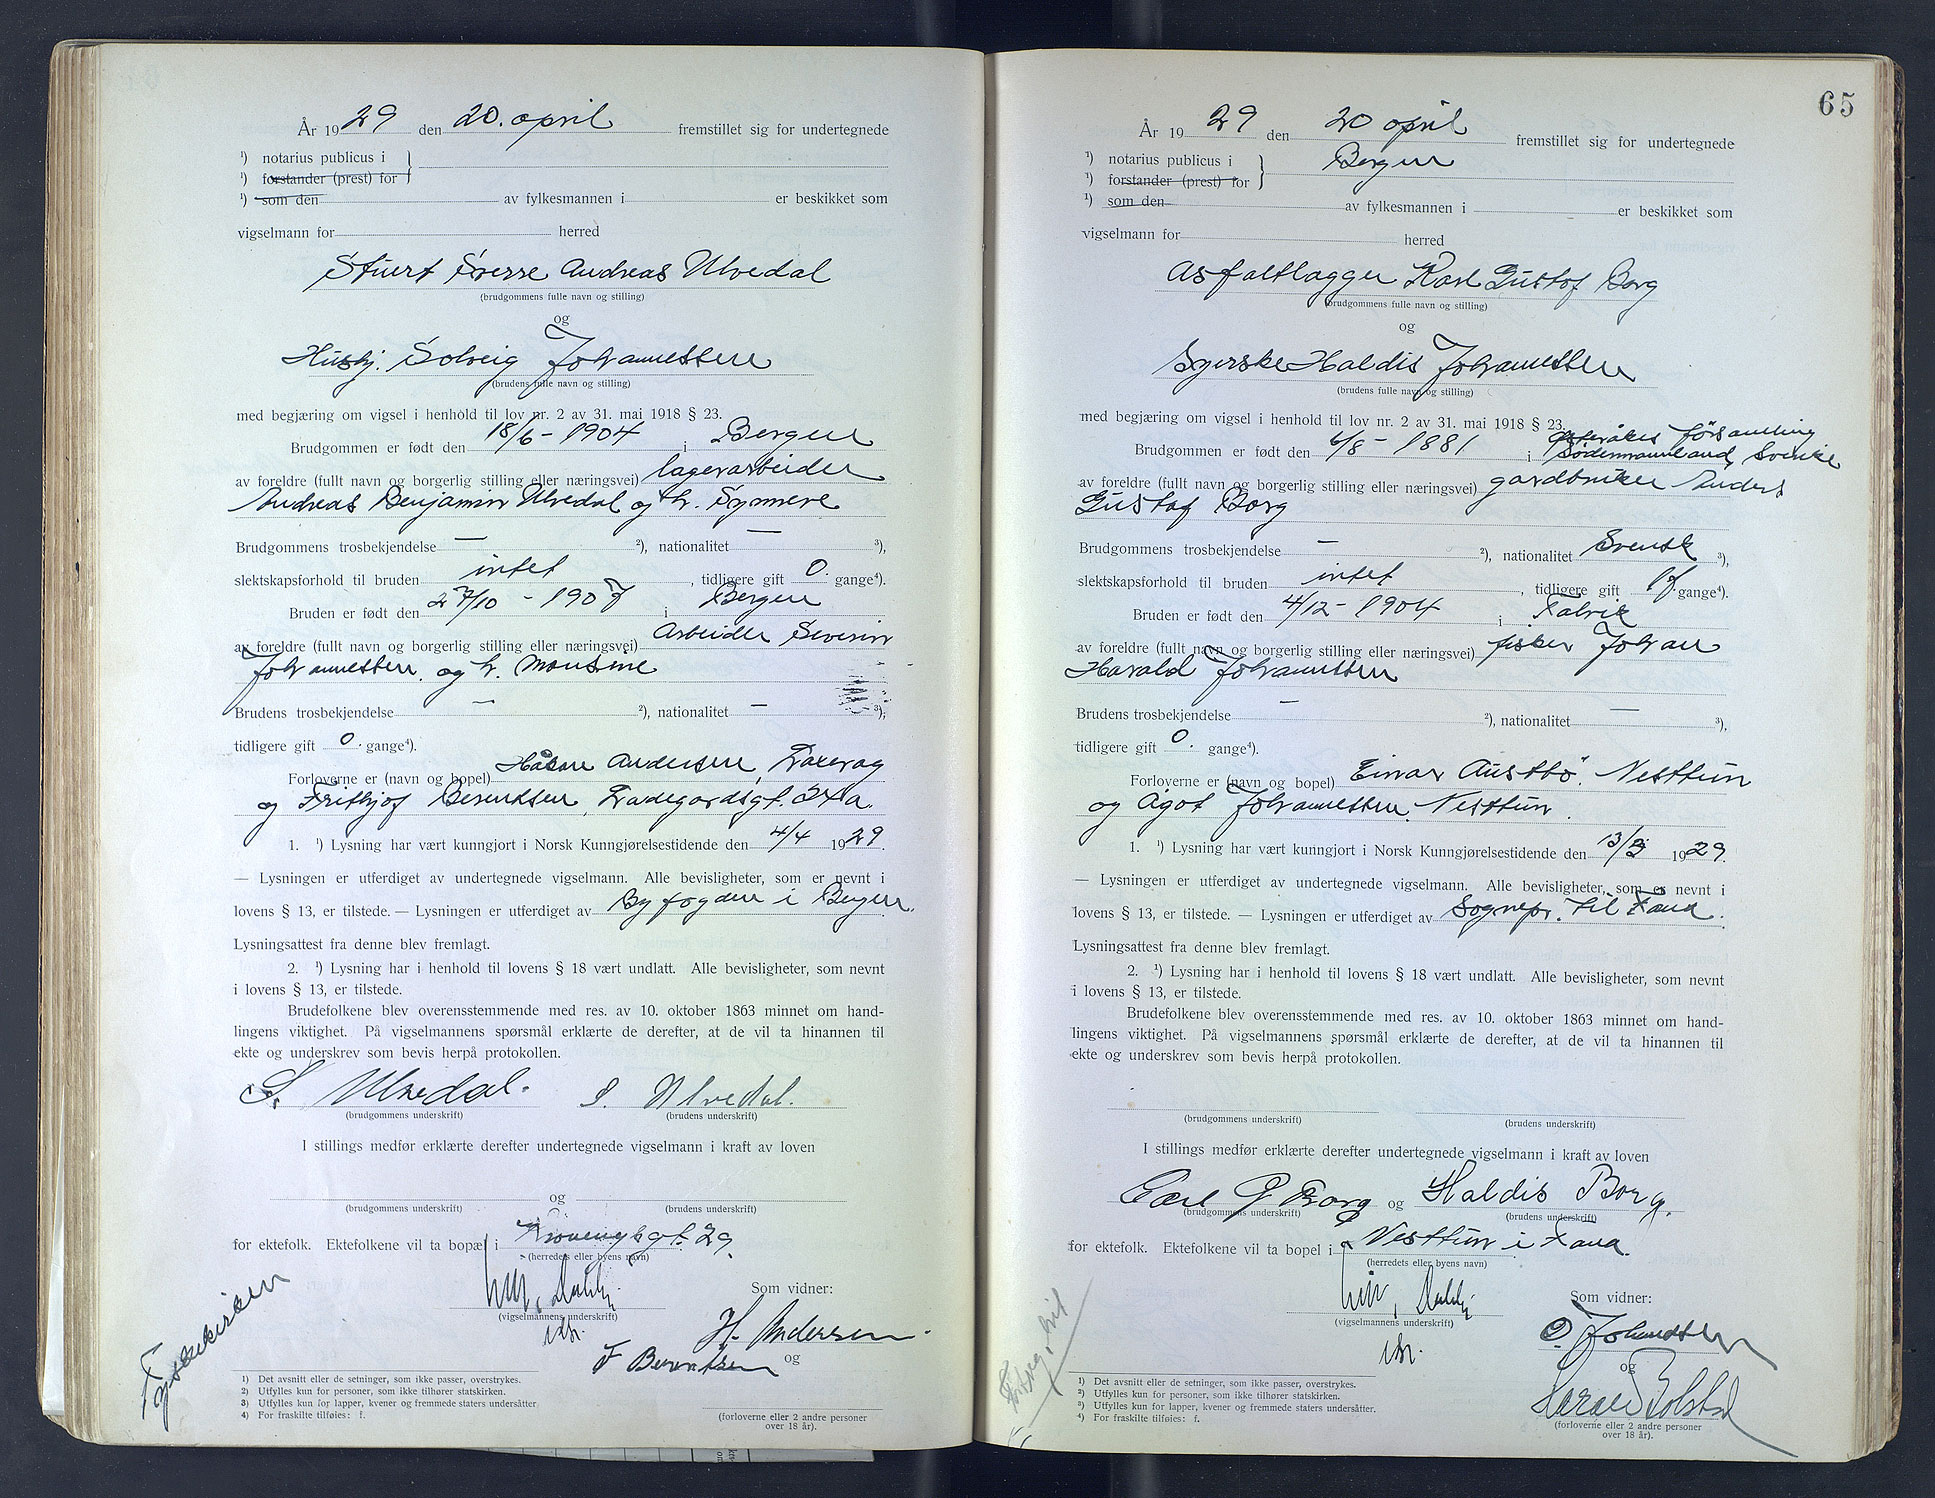 År 1929 den 20. april fremstillet sig for undertegnede
¹) notarius publicus i
¹) forstander (prest) for
¹) som den av fylkesmannen i er beskikket som
vigselmann for herred
Stuert Sverre Andreas Ulvedal
(brudgommens fulle navn og stilling)
og
Hushj. Solveig Johannessen
(brudens fulle navn og stilling)
med begjæring om vigsel i henhold til lov nr. 2 av 31. mai 1918 § 23.
Brudgommen er født den 18/6 - 1904 i Bergen
av foreldre (fullt navn og borgerlig stilling eller næringsvei) lagerarbeider
Andreas Benjamin Ulvedal og h. Synneve
Brudgommens trosbekjendelse — ²), nationalitet — ³),
slektskapsforhold til bruden intet, tidligere gift 0. gange⁴).
Bruden er født den 27/10 - 1907 i Bergen
av foreldre (fullt navn og borgerlig stilling eller næringsvei) Arbeider Severin
Johannessen og h. Monsine
Brudens trosbekjendelse — ²), nationalitet — ³),
tidligere gift 0. gange⁴).
Forloverne er (navn og bopel) Håkon Andersen, Laxevag
og Frithjof Berentsen, Ladegardsgt. 34a.
1. ¹) Lysning har vært kunngjort i Norsk Kunngjørelsestidende den 4/4 1929.
— Lysningen er utferdiget av undertegnede vigselmann. Alle bevisligheter, som er nevnt i
lovens § 13, er tilstede. — Lysningen er utferdiget av Byfogden i Bergen.
Lysningsattest fra denne blev fremlagt.
2. ¹) Lysning har i henhold til lovens § 18 vært undlatt. Alle bevisligheter, som nevnt
i lovens § 13, er tilstede.
Brudefolkene blev overensstemmende med res. av 10. oktober 1863 minnet om hand-
lingens viktighet. På vigselmannens spørsmål erklærte de derefter, at de vil ta hinannen til
ekte og underskrev som bevis herpå protokollen.
S. Ulvedal. S. Ulvedal.
(brudgommens underskrift) (brudens underskrift)
I stillings medfør erklærte derefter undertegnede vigselmann i kraft av loven
og
(brudgommens underskrift) (brudens underskrift)
for ektefolk. Ektefolkene vil ta bopæl i gt. 29
(herredets eller byens navn)
Som vidner:
(vigselmannens underskrift)
H. Andersen
og
F Berentsen
Fyllingskirken
¹) Det avsnitt eller de setninger, som ikke passer, overstrykes.
²) Utfylles kun for personer, som ikke tilhører statskirken.
³) Utfylles kun for lapper, kvener og fremmede staters undersåtter
⁴) For fraskilte tilføies: f.
(forloverne eller 2 andre personer
over 18 år).
65
År 1929 den 20 april fremstillet sig for undertegnede
¹) notarius publicus i Bergen
¹) forstander (prest) for
¹) som den av fylkesmannen i er beskikket som
vigselmann for herred
Asfaltlagger Karl Gustof Borg
(brudgommens fulle navn og stilling)
og
Syerske Haldis Johannessen
(brudens fulle navn og stilling)
med begjæring om vigsel i henhold til lov nr. 2 av 31. mai 1918 § 23.
Österåkers församling
Brudgommen er født den 6/8 - 1881 i Södermannland, Sverike
av foreldre (fullt navn og borgerlig stilling eller næringsvei) gardbruker Anders
Gustaf Borg
Brudgommens trosbekjendelse — ²), nationalitet Svensk ³),
slektskapsforhold til bruden intet, tidligere gift 1 f. gange⁴).
Bruden er født den 4/12 - 1904 i Talvik
av foreldre (fullt navn og borgerlig stilling eller næringsvei) fisker Johan
Harald Johannessen
Brudens trosbekjendelse — ²), nationalitet — ³),
tidligere gift 0. gange⁴).
Forloverne er (navn og bopel) Einar Austbö. Nesttun
og Agot Johannessen. Nesttun.
1. ¹) Lysning har vært kunngjort i Norsk Kunngjørelsestidende den 13/3 1929.
— Lysningen er utferdiget av undertegnede vigselmann. Alle bevisligheter, som er nevnt i
lovens § 13, er tilstede. — Lysningen er utferdiget av Sognepr. til Fana.
Lysningsattest fra denne blev fremlagt.
2. ¹) Lysning har i henhold til lovens § 18 vært undlatt. Alle bevisligheter, som nevnt
i lovens § 13, er tilstede.
Brudefolkene blev overensstemmende med res. av 10. oktober 1863 minnet om hand-
lingens viktighet. På vigselmannens spørsmål erklærte de derefter, at de vil ta hinannen til
ekte og underskrev som bevis herpå protokollen.
(brudgommens underskrift) (brudens underskrift)
I stillings medfør erklærte derefter undertegnede vigselmann i kraft av loven
Carl G Borg og Haldis Borg.
(brudgommens underskrift) (brudens underskrift)
for ektefolk. Ektefolkene vil ta bopel i Nesttun i Fana.
(herredets eller byens navn)
Som vidner:
(vigselmannens underskrift)
og
Harald Bolstad
¹) Det avsnitt eller de setninger, som ikke passer, overstrykes.
²) Utfylles kun for personer, som ikke tilhører statskirken.
³) Utfylles kun for lapper, kvener og fremmede staters undersåtter.
⁴) For fraskilte tilføies: f.
(forloverne eller 2 andre personer
over 18 år).